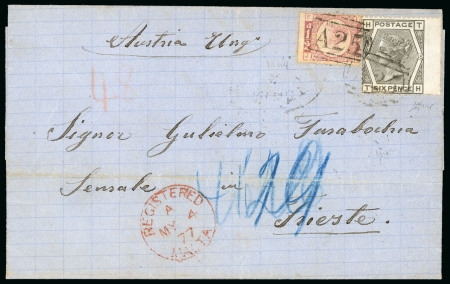 Austria Ung.
A25
H POSTAGE T
T SIX PENCE H
Signor Gulielmo Tarabochia
Sensale in
Trieste.
REGISTERED
A
MY 4
77
MALTA